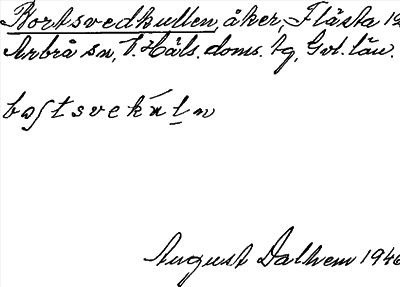 Bortsvedkullen, åker, Flästa 19
Arbrå sn, V. Häls. doms. tg, Gvl. län.
boſtsvekul̲n
August Dalhem 1946